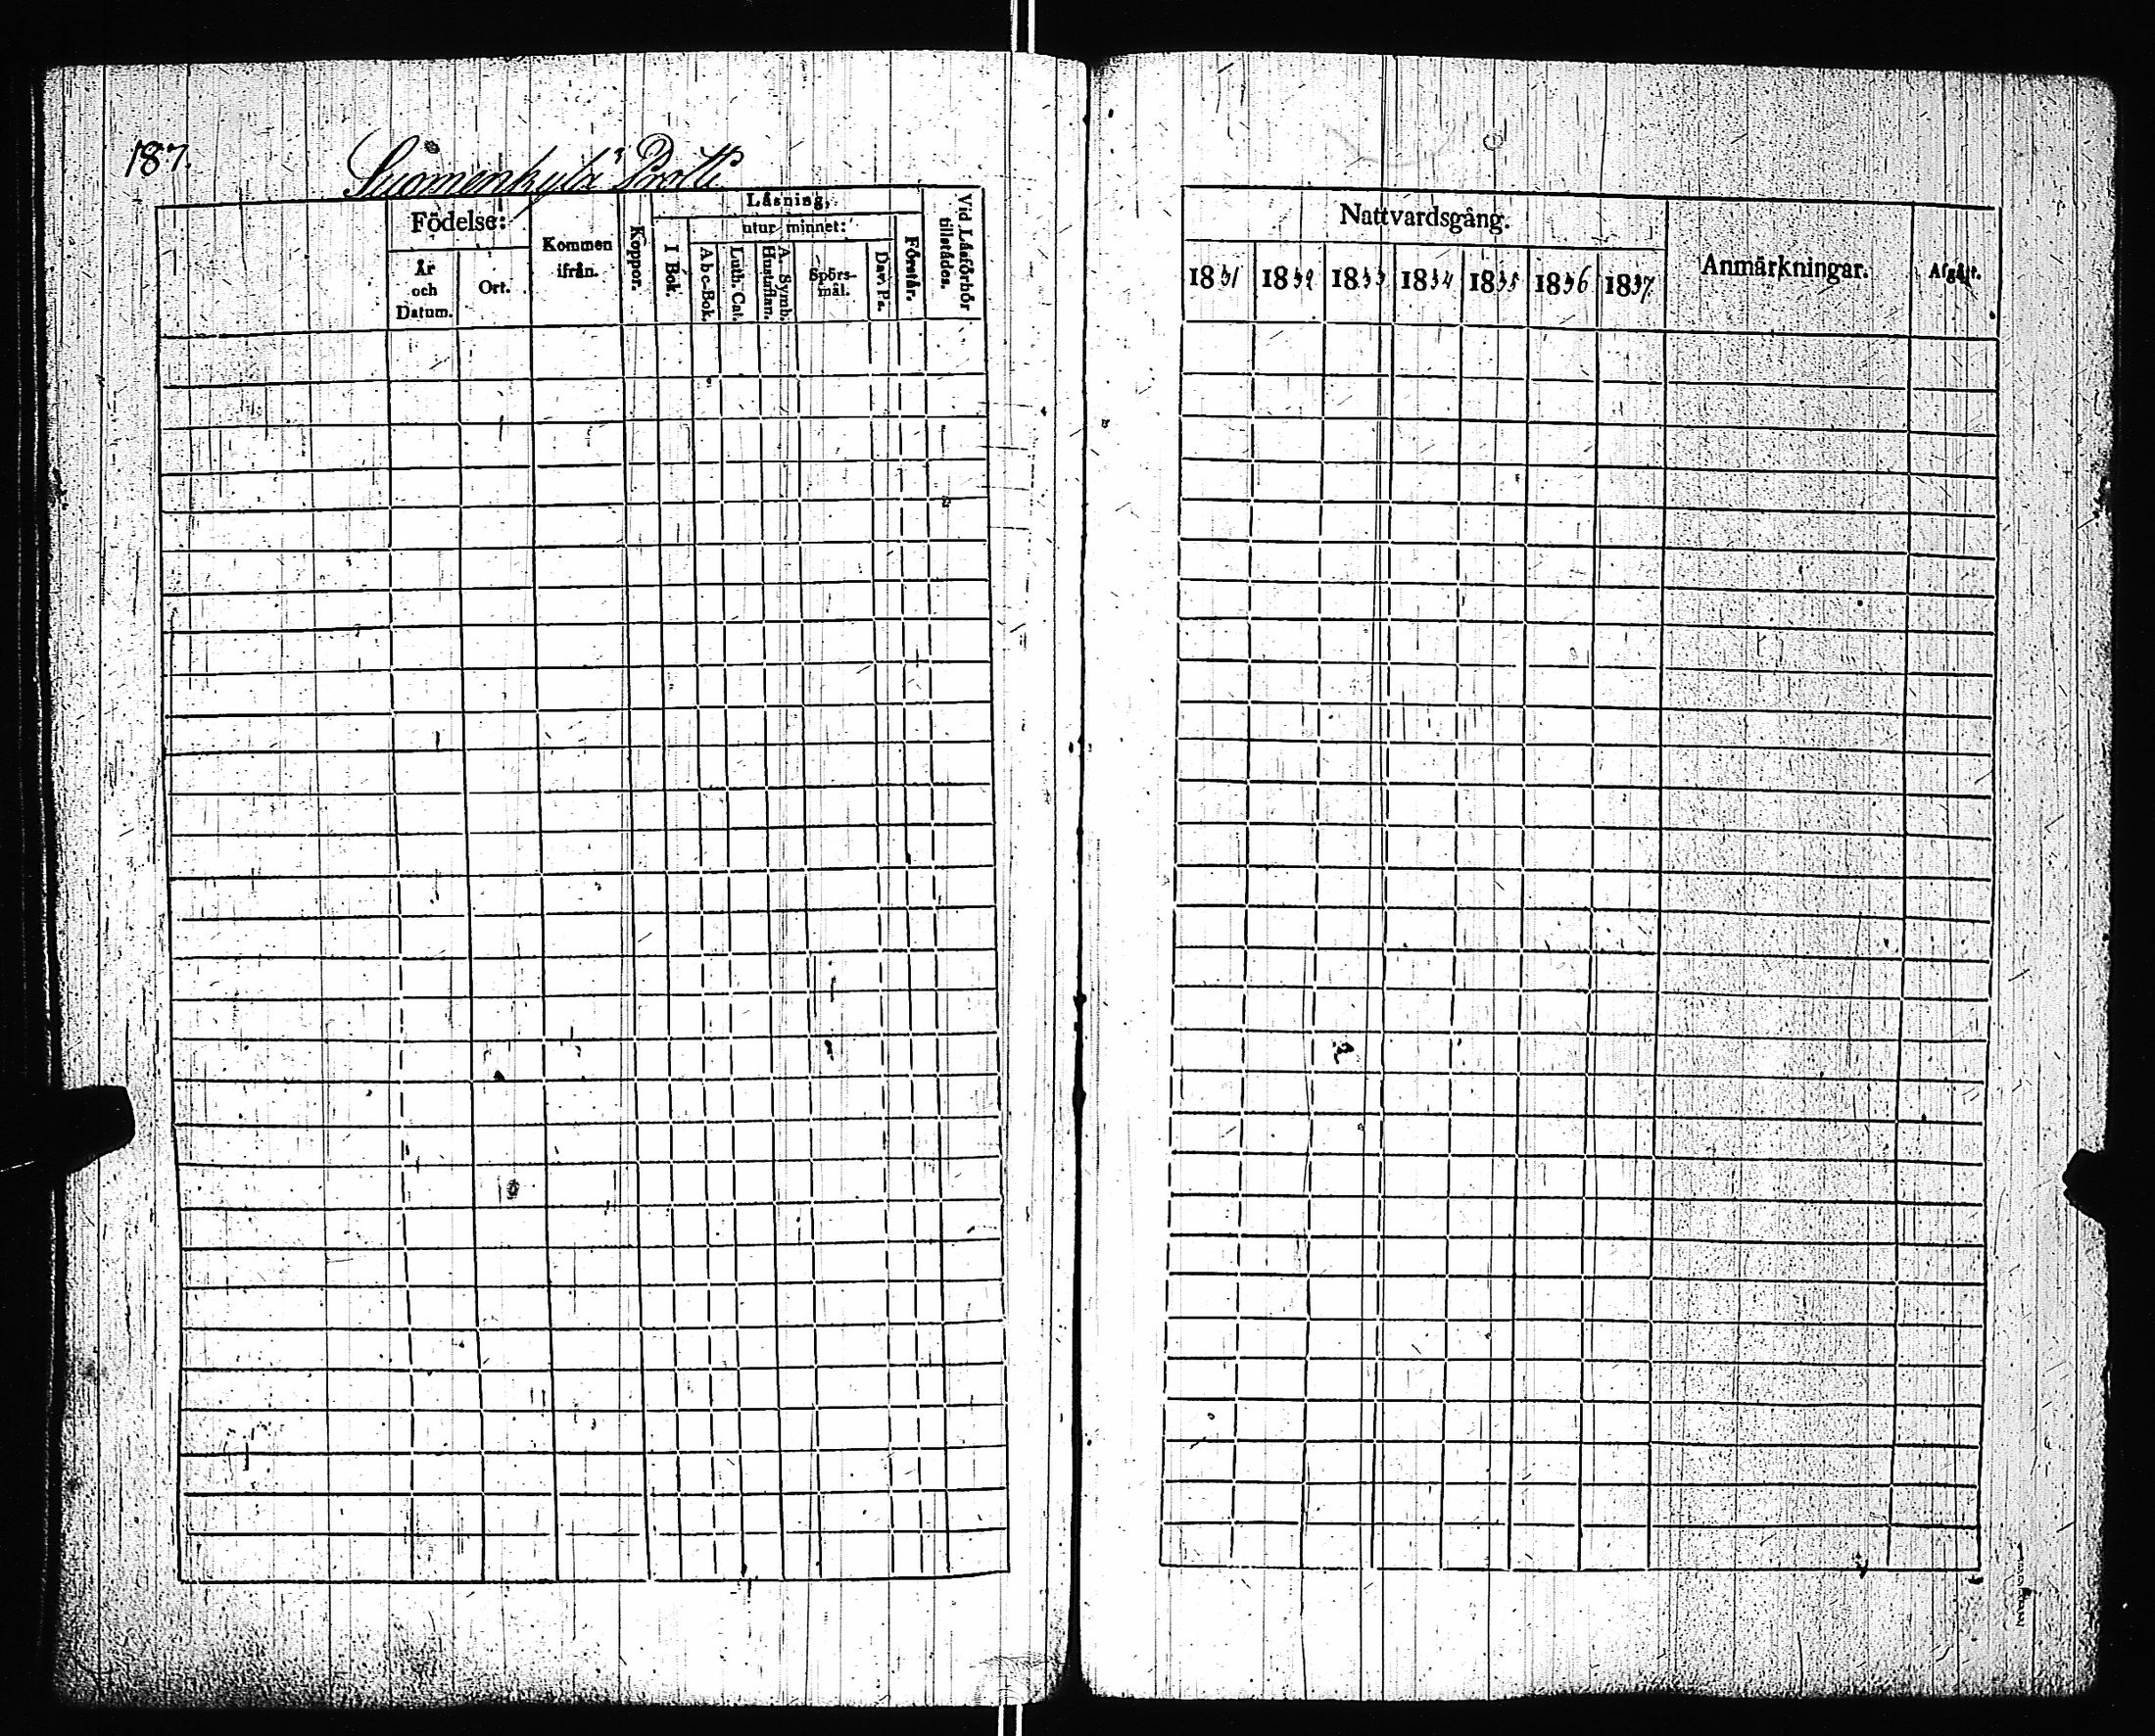 187.
Suomenkylä Prolli
Födelse:
År
och
Datum.
Ort.
Kommen
ifrån.
Koppor.
Läsning,
utur minnet:
I Bok.
Abc-Bok.
Luth. Cat.
Hustaflan.
A. Symb.
Spörs-
mål.
Dav. Ps.
Förstår.
Vid Läsförhör
tillstädes.
Nattvardsgång.
1831 1832 1833 1834 1835 1836 1837
Anmärkningar.
Afgått.